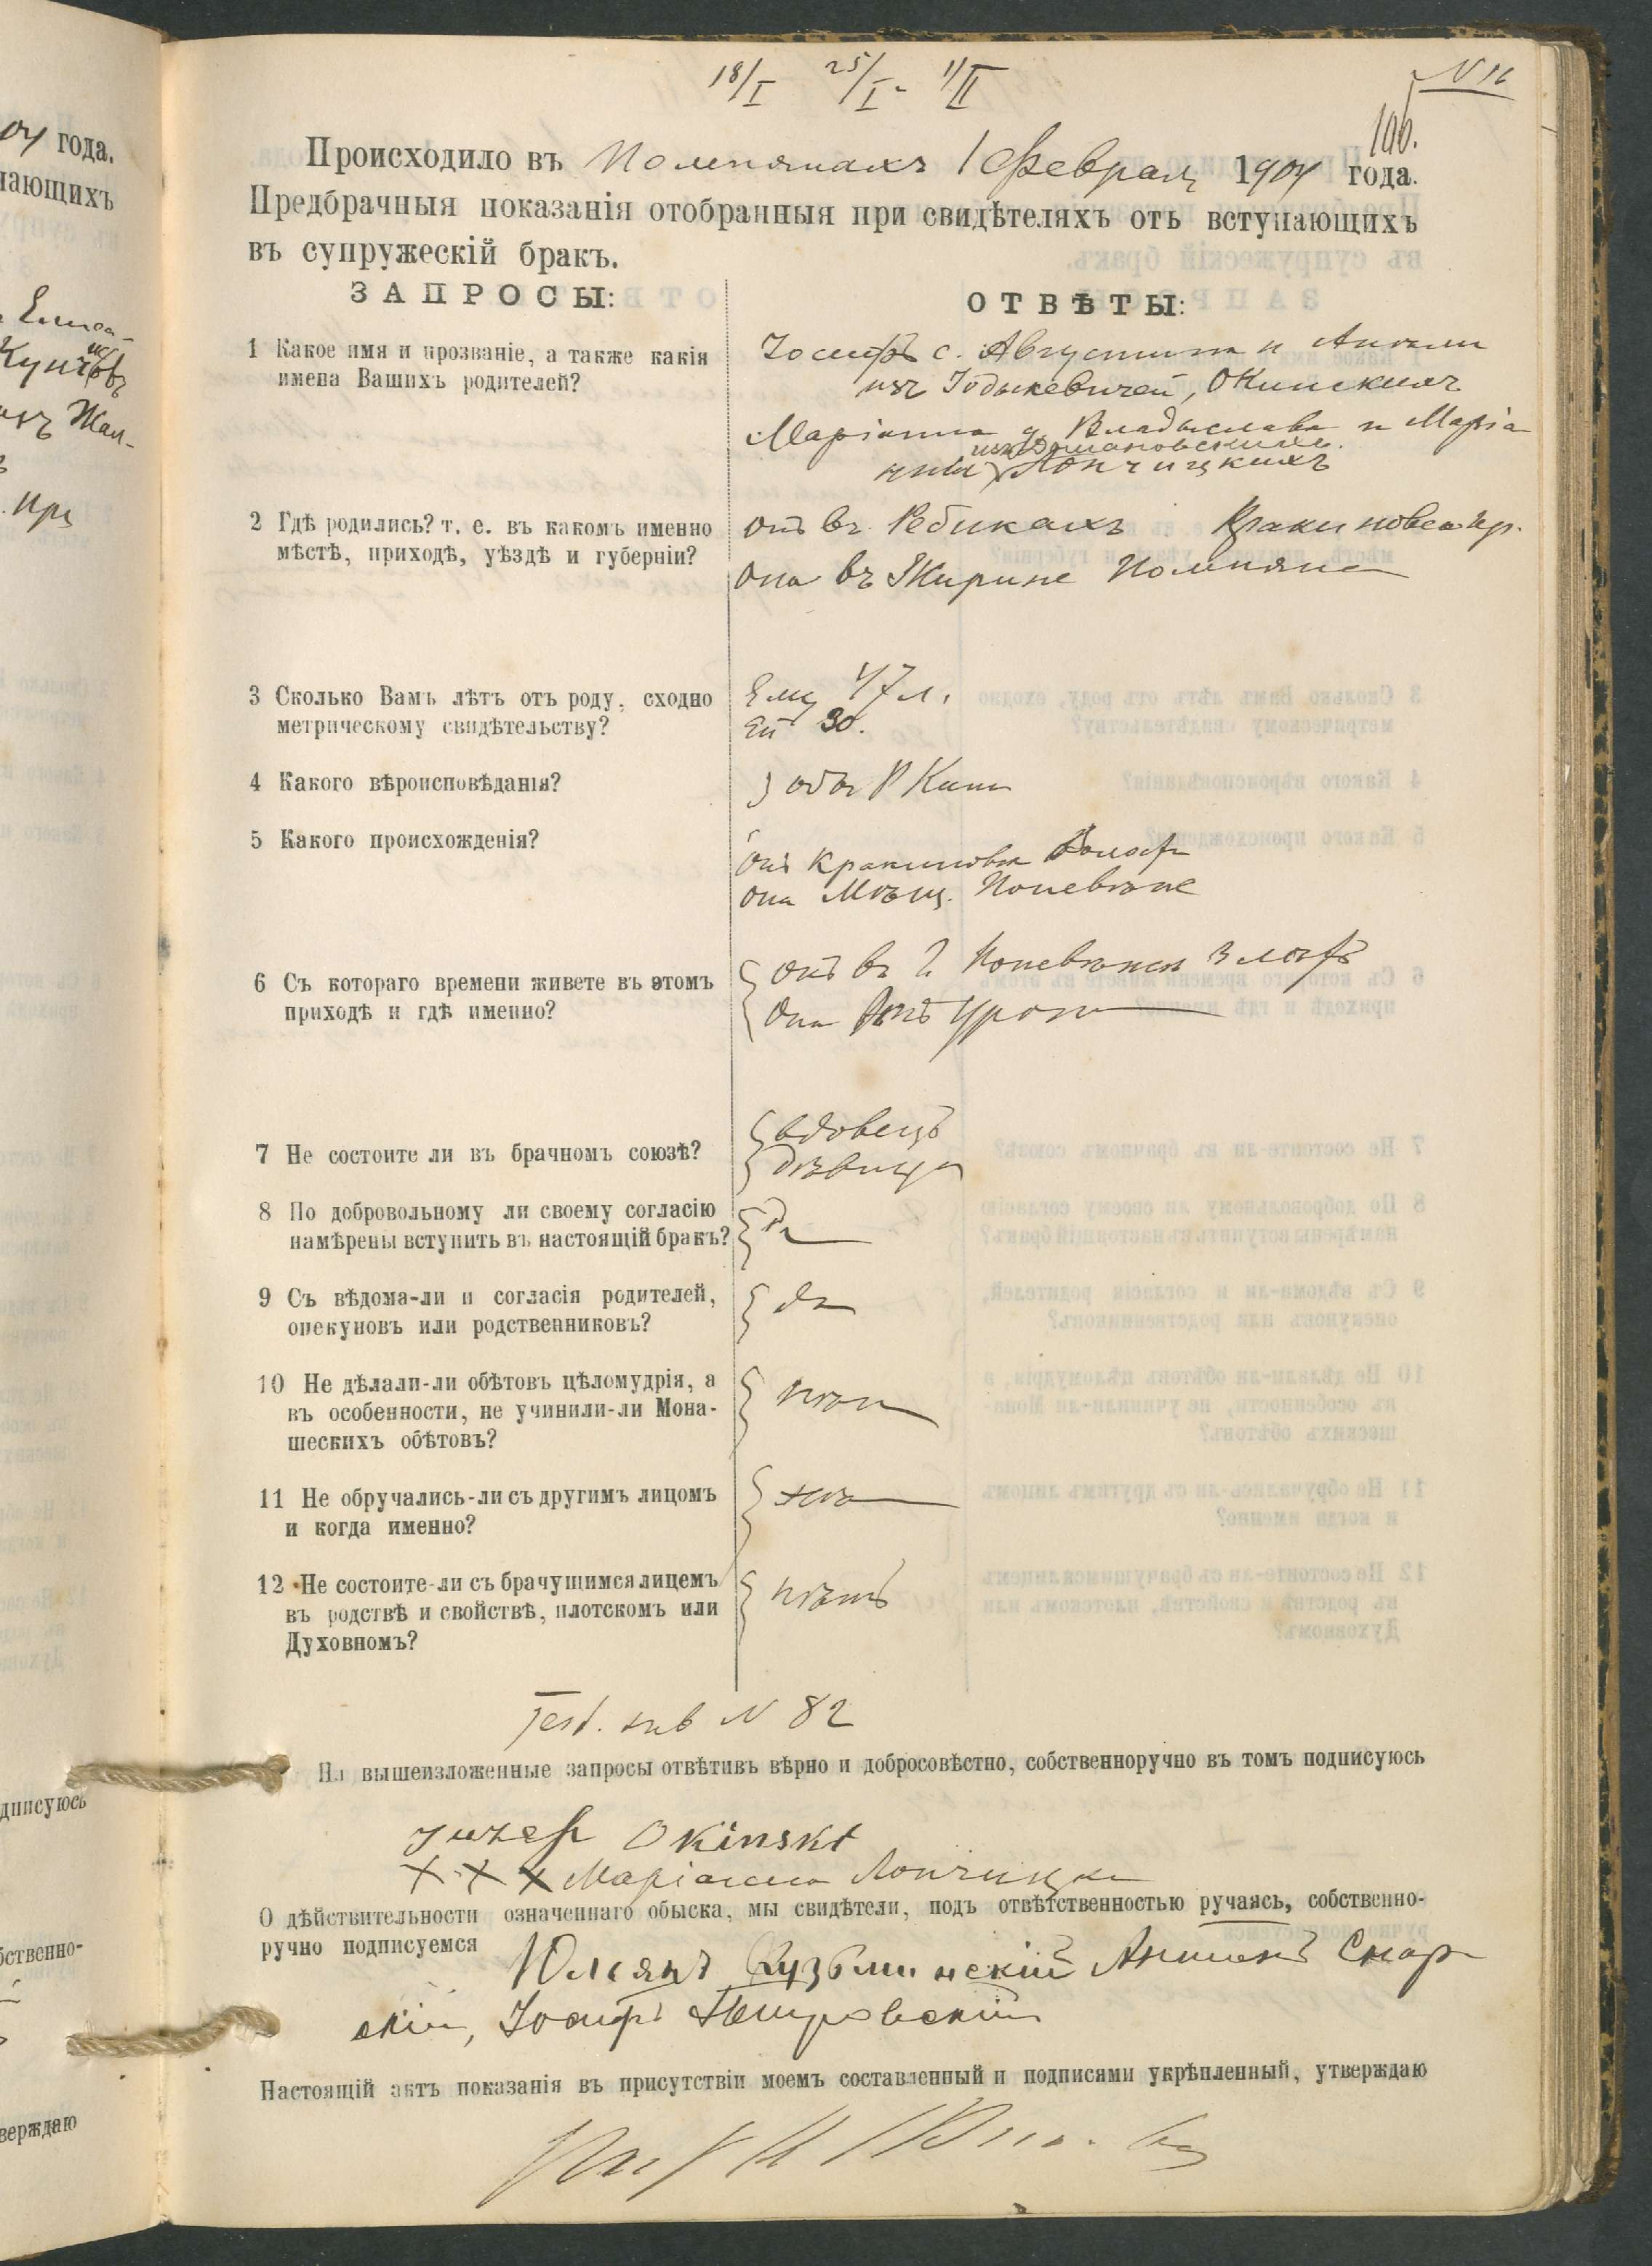 18/I 25/I - 1/II
N 16
106.
Происходило въ Помпянахъ 1 Февраля 1904 года.
Предбрачныя показанія отобранныя при свидѣтеляхъ отъ вступающихъ
въ супружескій бракъ.
ЗАПРОСЫ:
ОТВѢТЫ:
1 Какое имя и прозваніе, а также какія
имена Вашихъ родителей?
Іосифъ с. Августина и Анели
изъ Юдыкевичей, Окинскихъ
Маріанна д. Владыслава и Маріа
нны изъ Домановскихъ Лончицкихъ
2 Гдѣ родились? т. е. въ какомъ именно
мѣстѣ, приходѣ, уѣздѣ и губерніи?
Онъ въ Ребикахъ Кракиновск. пр.
Она въ Жирине Помпяны
3 Сколько Вамъ лѣтъ отъ роду, сходно
метрическому свидѣтельству?
Ему 47 л.
Ей 30.
4 Какого вѣроисповѣданія?
оба Р Кат
5 Какого происхожденія?
Онъ Кракиновск Волости
Она Мѣщ. Поневѣж
6 Съ котораго времени живете въ этомъ
приходѣ и гдѣ именно?
Онъ въ г. Поневѣжѣ
Она
7 Не состоите ли въ брачномъ союзѣ?
вдовецъ
дѣвица
8 По добровольному ли своему согласію
намѣрены вступить въ настоящій бракъ?
Да
9 Съ вѣдома-ли и согласія родителей,
опекуновъ или родственниковъ?
да
10 Не дѣлали-ли обѣтовъ цѣломудрія, а
въ особенности, не учинили-ли Мона-
шескихъ обѣтовъ?
нѣтъ
11 Не обручались-ли съ другимъ лицомъ
и когда именно?
нѣтъ
12 Не состоите-ли съ брачущимся лицемъ
въ родствѣ и свойствѣ, плотскомъ или
Духовномъ?
нѣтъ
Test. sub N 82
На вышеизложенные запросы отвѣтивъ вѣрно и добросовѣстно, собственноручно въ томъ подписуюсь
Juzef Okinski
X X X Маріанна Лончицка
О дѣйствительности означеннаго обыска, мы свидѣтели, подъ отвѣтственностью ручаясь, собственно-
ручно подписуемся
Юліянъ Кузьминскій Антонъ Скор
скій, Іосифъ Петровскій
Настоящій актъ показанія въ присутствіи моемъ составленный и подписями укрѣпленный, утверждаю